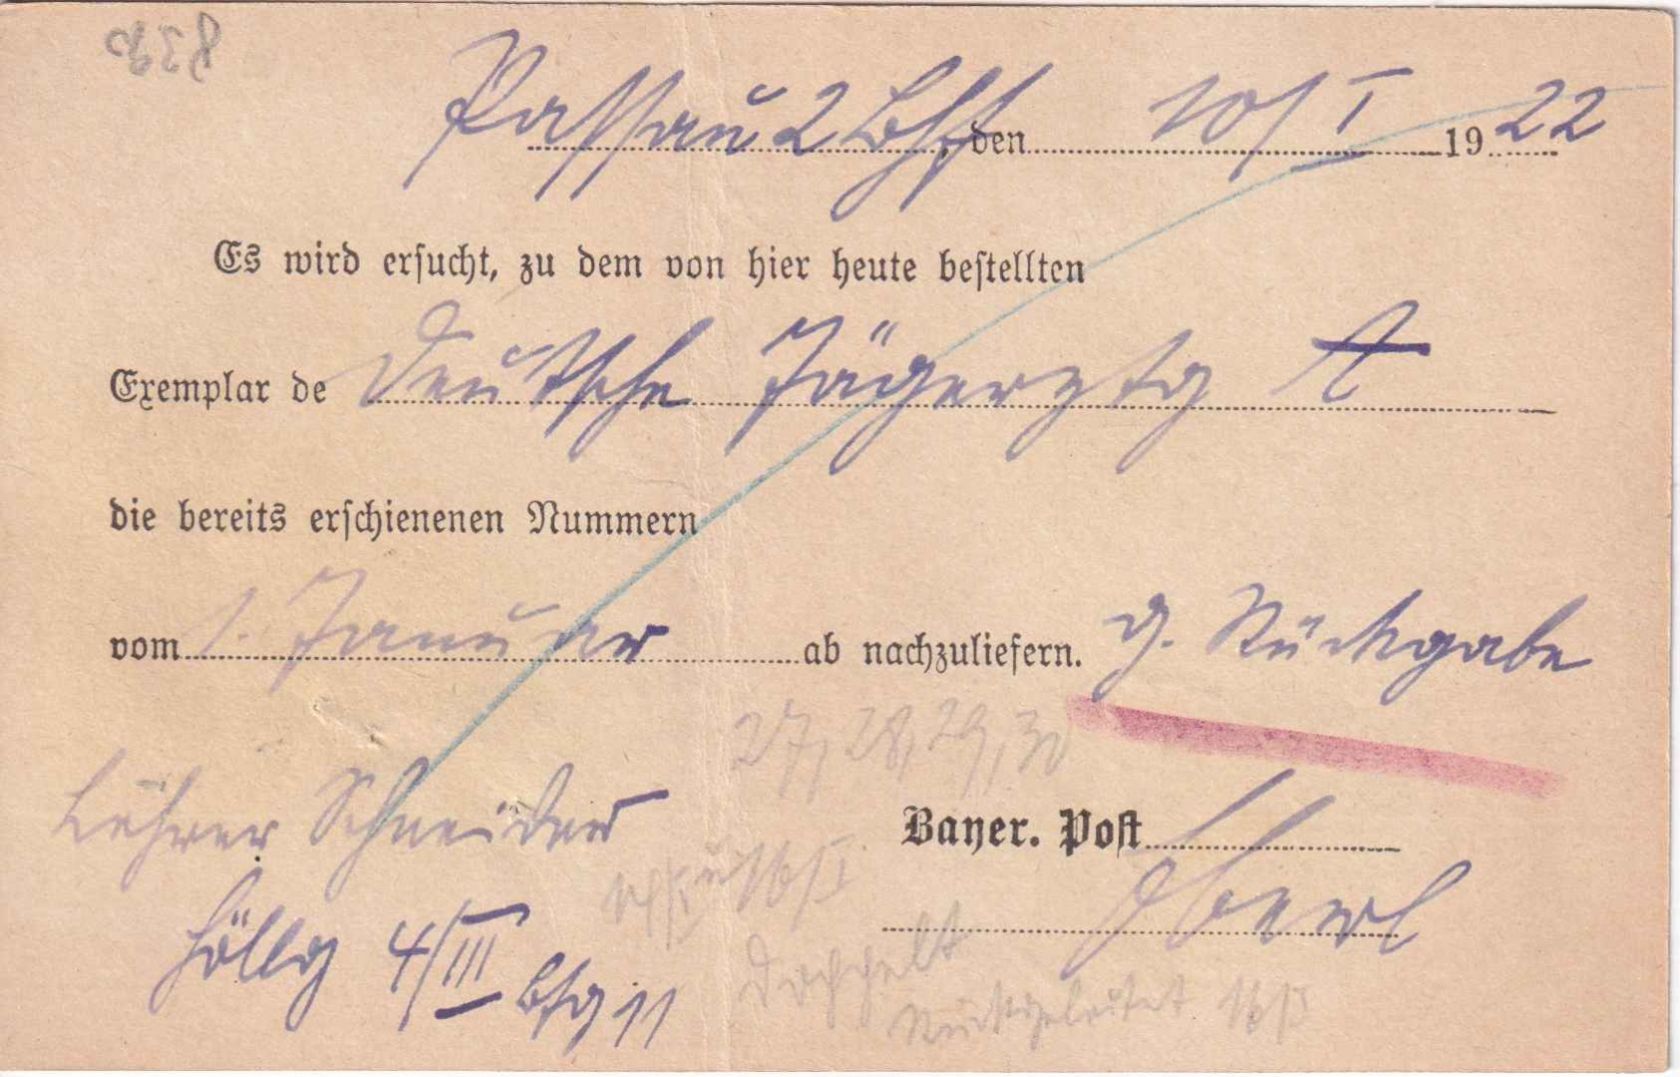 Passau 2 Bhf, den 10/I 1922
Es wird ersucht, zu dem von hier heute bestellten
Exemplar de Deutsche Jägerztg A
die bereits erschienenen Nummern
vom 1. Januar ab nachzuliefern. g. Rückgabe
27, 28, 29, 30
Lehrer Schneider
Bayer. Post
16/I
Oberl
4/III
Doppelt
Rückgeleitet 16/I